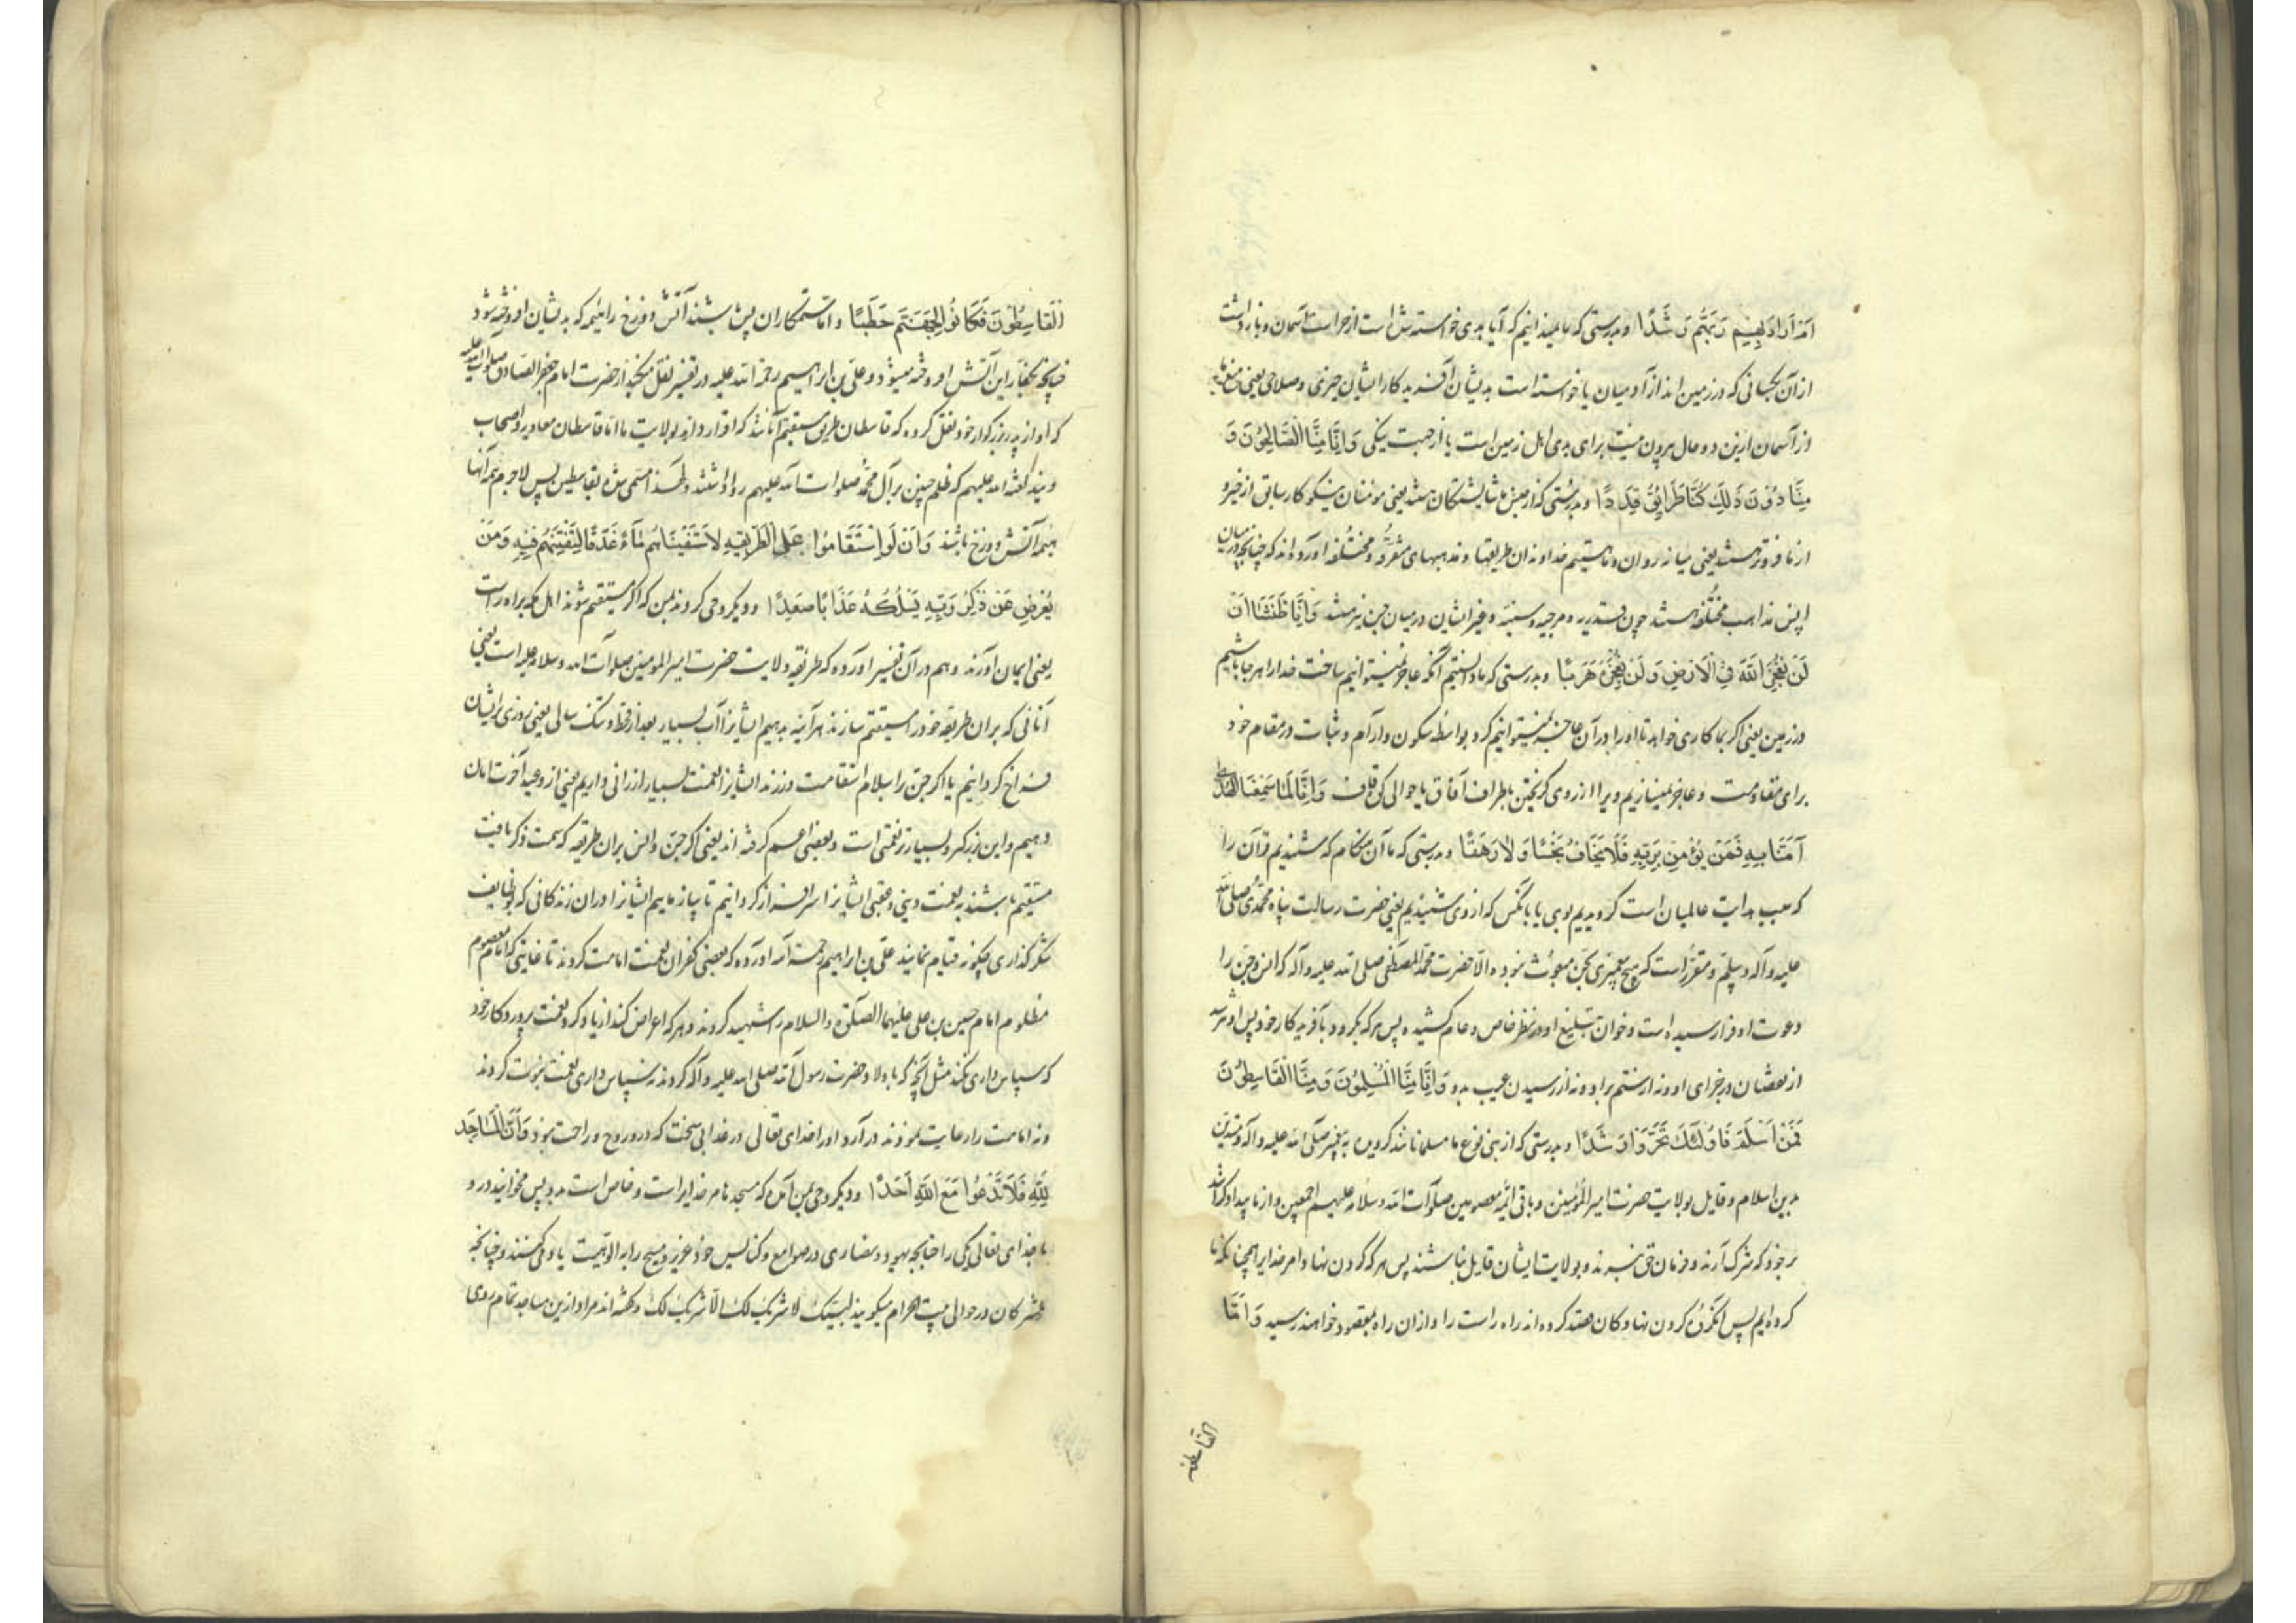 اَمْ اَرَادَ بِهِمْ رَبُّهُمْ رَشَدًا و بدرستی که ما نمیدانیم که آیا بدی خواسته شده است از حراست آسمان و بازداشت
از آن بکسانی که در زمین اند از آدمیان یا خواسته است بدیشان آفریدکار ایشان خیری و صلاحی یعنی منع ما
از آسمان ازین دو حال بیرون نیست برای بدی اهل زمین است یا از جهت نیکی وَاِنَّا مِنَّا الصَّالِحُوْنَ وَ
مِنَّا دُوْنَ ذٰلِكَ كُنَّا طَرَایِقَ قِدَدًا و بدرستی که از جنس ما شایستکان هستند یعنی مؤمنان نیکو کار سابق از خیر و
از ما فروتر هستند یعنی میانه روان و ما هستیم خداوندان طریقها و مذهبهای متفرقه و مختلفه آورده اند که چنانچه در میان
انس مذاهب مختلفه هستند چون قدریه و مرجیه و سنیه و غیر ایشان در میان جن نیز هستند وَاِنَّا ظَنَنَّا اَنْ
لَنْ نُعْجِزَ اللّٰهَ فِی الْاَرْضِ وَلَنْ نُعْجِزَهُ هَرَبًا و بدرستی که ما دانستیم آنکه عاجز نمیتوانیم ساخت خدا را هر جا باشیم
در زمین یعنی اکر بما کاری خواهد تا او را در آن عاجز نمیتوانیم کرد بواسطه سکون و آرام و ثبات در مقام خود
برای مقاومت و عاجز نمیسازیم ویرا از روی کریختن باطراف آفاق یا حوالی کوه قاف وَاِنَّا لَمَّا سَمِعْنَا الْهُدٰی
آمَنَّا بِهِ فَمَنْ یُؤْمِنْ بِرَبِّهِ فَلَا یَخَافُ بَخْسًا وَلَا رَهَقًا و بدرستی که ما آن هنکام که شنیدیم قرآن را
که سبب هدایت عالمیان است کرویدیم بوی یا بآنکس که از وی شنیدیم یعنی حضرت رسالت پناه محمدی صلی الله
علیه و آله و سلم و مقرر است که هیچ پیغمبری بجن مبعوث نبوده الا حضرت محمد المصطفی صلی الله علیه و آله که انس و جن را
دعوت او فرا رسیده است و خوان تبلیغ او در نظر خاص و عام کشیده پس هر که بکرود بآفریدکار خود پس او نترسد
از نقصان در جزای او و نه از ستم بر او و نه از رسیدن عیب بدو وَاِنَّا مِنَّا الْمُسْلِمُوْنَ وَمِنَّا الْقَاسِطُوْنَ
فَمَنْ اَسْلَمَ فَاُولٰئِكَ تَحَرَّوْا رَشَدًا و بدرستی که از بنی نوع ما مسلمانانند کرویده به پیغمبر صلی الله علیه و آله و متدین
بدین اسلام و قایل بولایت حضرت امیر المؤمنین و باقی ائمه معصومین صلوات الله و سلامه علیهم اجمعین و از ما بیدادکرانند
بر خود که شرک آرند و فرمان حق نبرند و بولایت ایشان قایل نباشند پس هر که کردن نهاد امر خدایرا همچنانکه ما
کرده ایم پس آنکروه کردن نهادکان قصد کرده اند راه راست را و ازان راه بمقصود خواهند رسید وَاَمَّا
القاسطون
اَلْقَاسِطُوْنَ فَكَانُوْا لِجَهَنَّمَ حَطَبًا و اما ستمکاران پس باشند آتش دوزخ را هیمه که بدیشان افروخته شود
چنانچه بکفار این آتش افروخته میشود و علی بن ابراهیم رحمة الله علیه در تفسیر نقل میکند از حضرت امام جعفر الصادق صلوات الله علیه
که او از پدر بزرکوار خود نقل کرده که قاسطان طریق مستقیم آنانند که اقرار دارند بولایت ما اما قاسطان معاویه و اصحاب
ویند لعنه الله علیهم که ظلم چنین بر آل محمد صلوات الله علیهم روا داشتند و لهذا مسمی شدند بقاسطین پس لاجرم همه آنها
هیمه آتش دوزخ باشند وَاَنْ لَوِ اسْتَقَامُوْا عَلَی الطَّرِیْقَةِ لَاَسْقَیْنَاهُمْ مَاءً غَدَقًا لِنَفْتِنَهُمْ فِیْهِ وَمَنْ
یُعْرِضْ عَنْ ذِكْرِ رَبِّهِ یَسْلُكْهُ عَذَابًا صَعَدًا و دیکر وحی کردند بمن که اکر مستقیم شوند اهل مکه براه راست
یعنی ایمان آورند و هم در آن تفسیر آورده که طریقه ولایت حضرت امیر المؤمنین صلوات الله و سلامه علیه است یعنی
آنانی که بر آن طریقه خود را مستقیم سازند هر آینه بدهیم ایشانرا آب بسیار بعد از قحط و تنک سالی یعنی روزی بر ایشان
فراخ کردانیم یا اکر جن را باسلام استقامت ورزند ایشانرا نعمت بسیار ارزانی داریم یعنی از وعید آخرت امان
دهیم و این بزرکتر و بسیارتر نعمتی است و بعضی اعم کرفته اند یعنی اکر جن و انس بر آن طریقه که سمت ذکر یافت
مستقیم باشند بنعمت دینی و عقبی ایشانرا سرافراز کردانیم تا بیازماییم ایشانرا در آن زندکانی که بوظایف
شکرکذاری چکونه قیام نمایند علی بن ابراهیم رحمه الله آورده که بعضی کفران نعمت امامت کردند تا غایتی که امام معصوم
مظلوم امام حسین بن علی علیهما الصلوة و السلام را شهید کردند و هر که اعراض کند از یاد کرد نعمت پروردکار خود
که سپاس داری نکند مثل آنچه که با اولاد حضرت رسول الله صلی الله علیه و آله کردند نه سپاس داری نعمت نبوت کردند
و نه امامت را رعایت نمودند در آرد او را خدای تعالی در عذابی سخت که درو روح و راحت نبود وَاَنَّ الْمَسَاجِدَ
لِلّٰهِ فَلَا تَدْعُوْا مَعَ اللّٰهِ اَحَدًا و دیکر وحی بمن آمده که مسجدها مر خدایراست و خاص است بدو پس مخوانید در و
با خدای تعالی یکی را چنانچه یهود و نصاری در صوامع و کنایس خود عزیر و مسیح را به الوهیت یاد می کنند و چنانچه
مشرکان در حوالی بیت الحرام میکویند لبیک لا شریک لک الا شریک لک و کفته اند مراد ازین مساجد تمام روی